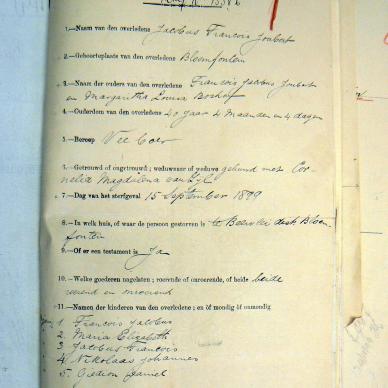 1.—Naam van den overledene Jacobus Francois Joubert
2.—Geboorteplaats van den overledene Bloemfontein
3.—Naam der ouders van den overledene Francois Jacobus Joubert
en Margaretha Louisa Boshof
4.—Ouderdom van den overledene 40 jaar 4 maanden en 4 dagen
5.—Beroep Vee Boer
6.—Getrouwd of ongetrouwd; weduwnaar of weduwe gehuwd met Cor-
nelia Magdalena van Zyl
7.—Dag van het sterfgeval 15 September 1899
8.—In welk huis, of waar de persoon gestorven is te distr Bloem
fontein
9.—Of er een testament is Ja
10.—Welke goederen nagelaten; roerende of onroerende, of beide beide
roerend en onroerend
11.—Namen der kinderen van den overledene; en òf mondig òf onmondig
1 Francois Jacobus
2. Maria Elizabeth
3 Jacobus Francois
4 Nikolaas Johannes
5. Gedion Daniel